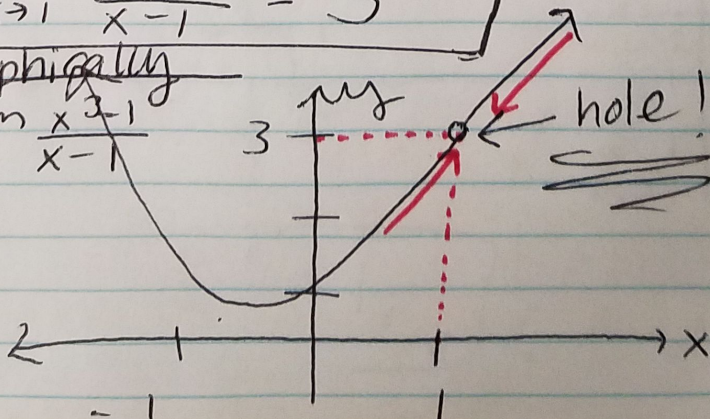 →1 x-1 = 3
phically
x³-1
x-1
y
3
hole!
x
-1 1